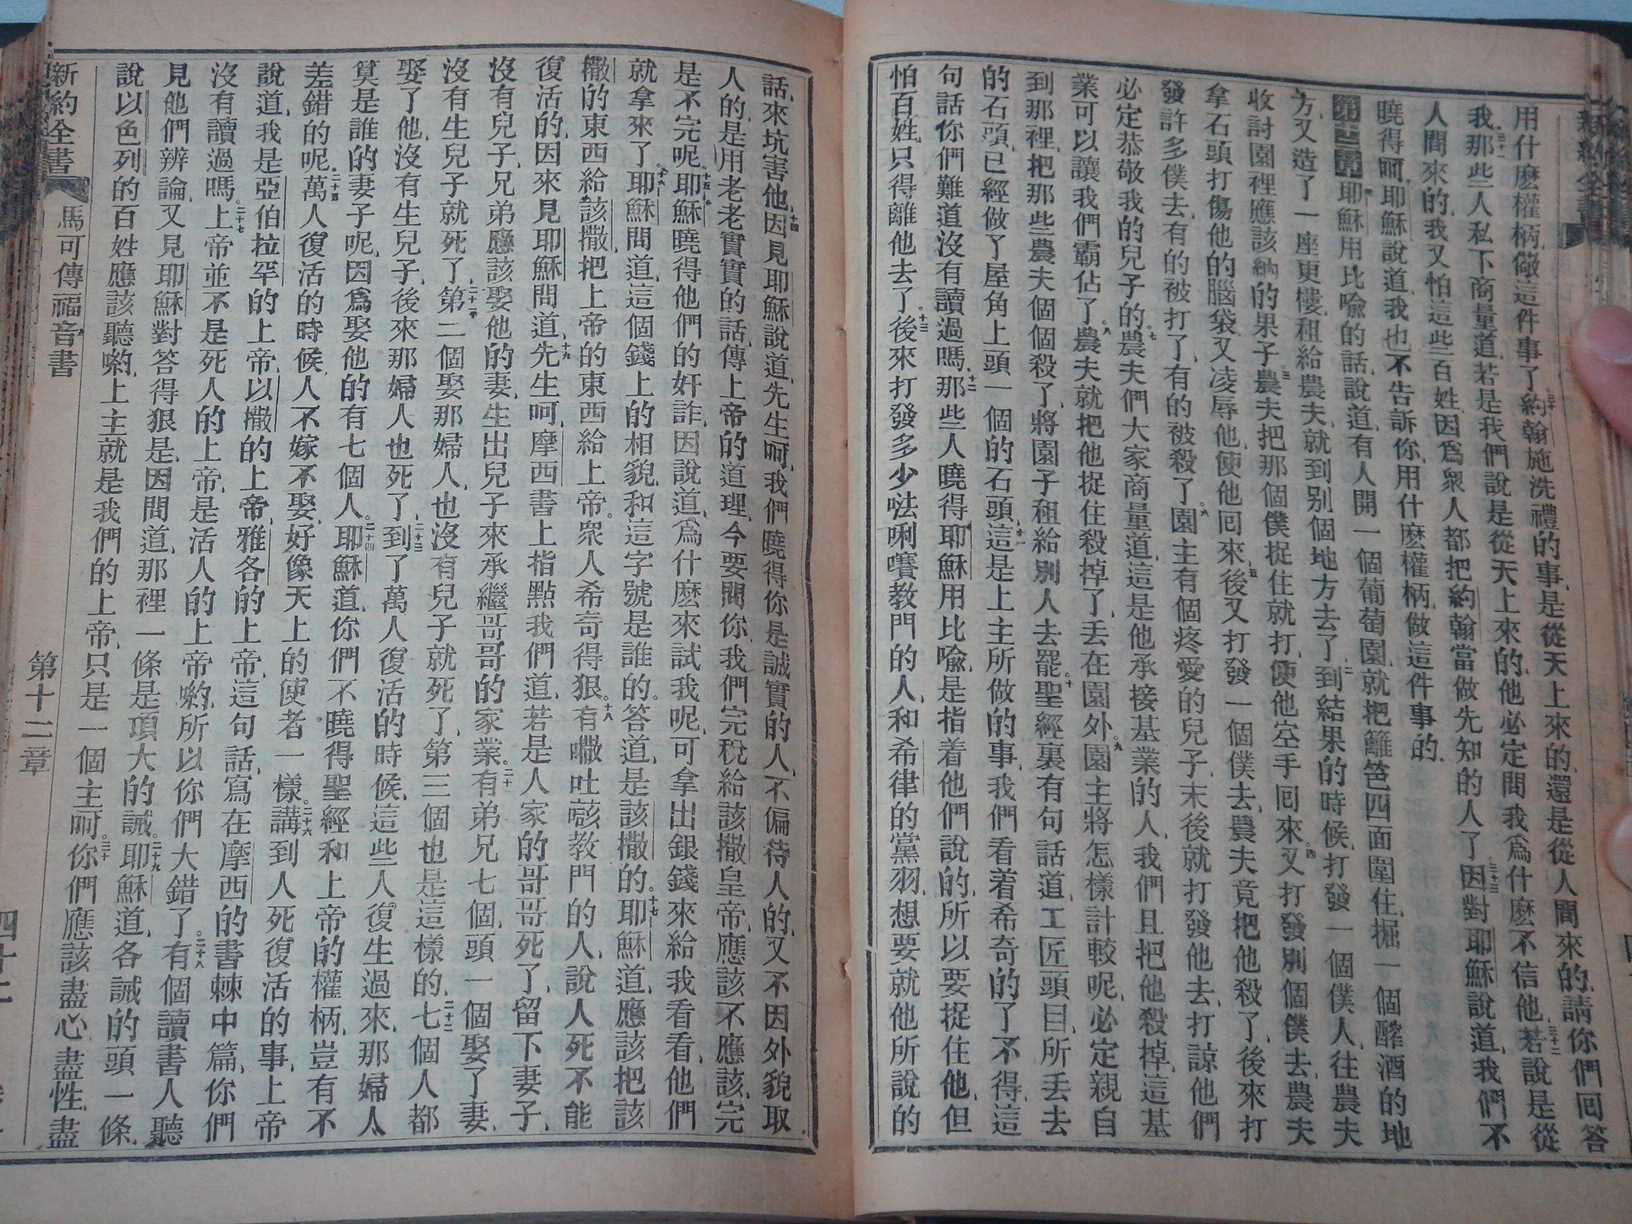 用什麽權柄儆這件事了約翰施洗禮的事是從天上來的還是從人間來的請你們回答
我那些人私下商量道若是我們說是從天上來的他必定問我爲什麽不信他若說是從
人間來的我又怕這些百姓因爲衆人都把約翰當做先知的人了因對耶穌說道我們不
曉得呵耶穌說道我也不告訴你用什麽權柄做這件事的
第十二章耶穌用比喩的話說道有人開一個葡萄園就把籬笆四面圍住掘一個醡酒的地
方又造了一座更樓租給農夫就到别個地方去了到結果的時候打發一個僕人往農夫
收討園裡應該納的果子農夫把那個僕捉住就打使他空手囘來又打發別個僕去農夫
拿石頭打傷他的腦袋又凌辱他使他囘來後又打發一個僕去農夫竟把他殺了後來打
發許多僕去有的被打了有的被殺了園主有個疼愛的兒子末後就打發他去打諒他們
必定恭敬我的兒子的農夫們大家商量道這是他承接基業的人我們且把他殺掉這基
業可以讓我們霸佔了農夫就把他捉住殺掉了丢在園外園主將怎樣計較呢必定親自
到那裡把那些農夫個個殺了將園子租給別人去罷聖經裏有句話道工匠頭目所丢去
的石頭已經做了屋角上頭一個的石頭這是上主所做的事我們看着希奇的了不得這
句話你們難道沒有讀過嗎那些人曉得耶穌用比喩是指着他們說的所以要捉住他但
怕百姓只得離他去了後來打發多少㳒唎賽教門的人和希律的黨羽想要就他所說的
話來坑害他因見耶穌說道先生呵我們曉得你是誠實的人不偏待人的又不因外貌取
人的是用老老實實的話傳上帝的道理今要問你我們完稅給該撒皇帝應該不應該完
是不完呢耶穌曉得他們的奸詐因說道爲什麽來試我呢可拿出銀錢來給我看看他們
就拿來了耶穌問道這個錢上的相貌和這字號是誰的答道是該撒的耶穌道應該把該
撒的東西給該撒把上帝的東西給上帝衆人希奇得狠有㘔吐該教門的人說人死不能
復活的因來見耶穌問道先生呵摩西書上指點我們道若是人家的哥哥死了留下妻子
沒有兒子兄弟應該娶他的妻生出兒子來承繼哥哥的家業有弟兄七個頭一個娶了妻
沒有生兒子就死了第二個娶那婦人也沒有兒子就死了第三個也是這樣的七個人都
娶了他沒有生兒子後來那婦人也死了到了萬人復活的時候這些人復生過來那婦人
算是誰的妻子呢因爲娶他的有七個人耶穌道你們不曉得聖經和上帝的權柄豈有不
差錯的呢萬人復活的時候人不嫁不娶好像天上的使者一樣講到人死復活的事上帝
說道我是亞伯拉罕的上帝以撒的上帝雅各的上帝這句話寫在摩西的書棘中篇你們
沒有讀過嗎上帝並不是死人的上帝是活人的上帝喲所以你們大錯了有個讀書人聽
見他們辨論又見耶穌對答得狠是因問道那裡一條是項大的誡耶穌道各誡的頭一條
說以色列的百姓應該聽喲上主就是我們的上帝只是一個主呵你們應該盡心盡性盡
新約全書 馬可傳福音書 第十二章 四十二